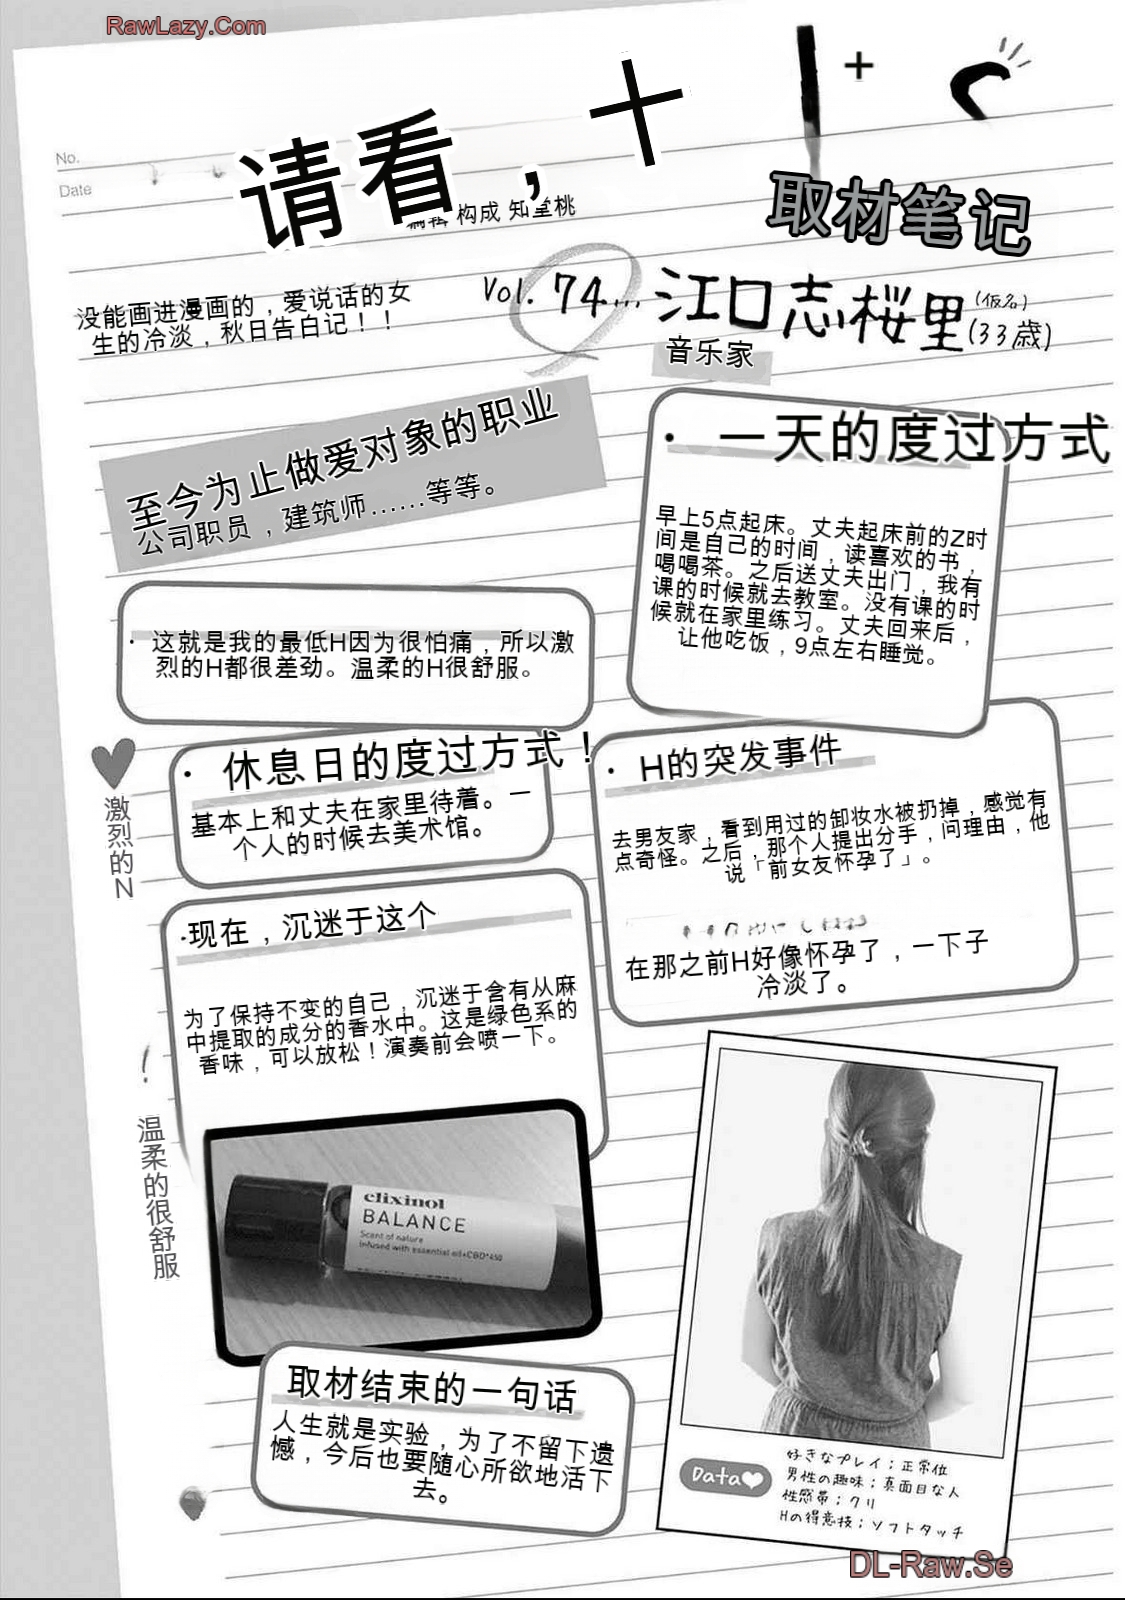 RawLazy.Com
No.
Date
请看，十
取材笔记
编辑 构成 知堂桃
没能画进漫画的，爱说话的女
生的冷淡，秋日告白记！！
Vol. 74... 江口志桜里(仮名)(33歳)
音乐家
至今为止做爱对象的职业
公司职员，建筑师……等等。
· 一天的度过方式
早上5点起床。丈夫起床前的Z时
间是自己的时间，读喜欢的书，
喝喝茶。之后送丈夫出门，我有
课的时候就去教室。没有课的时
候就在家里练习。丈夫回来后，
让他吃饭，9点左右睡觉。
· 这就是我的最低H因为很怕痛，所以激
烈的H都很差劲。温柔的H很舒服。
激烈的N
· 休息日的度过方式！
基本上和丈夫在家里待着。一
个人的时候去美术馆。
· H的突发事件
去男友家，看到用过的卸妆水被扔掉，感觉有
点奇怪。之后，那个人提出分手，问理由，他
说「前女友怀孕了」。
在那之前H好像怀孕了，一下子
冷淡了。
·现在，沉迷于这个
为了保持不变的自己，沉迷于含有从麻
中提取的成分的香水中。这是绿色系的
香味，可以放松！演奏前会喷一下。
温柔的很舒服
elixinol
BALANCE
Scent of nature
Infused with essential oil+CBD*450
取材结束的一句话
人生就是实验，为了不留下遗
憾，今后也要随心所欲地活下
去。
Data
好きなプレイ；正常位
男性の趣味；真面目な人
性感帯；クリ
Hの得意技；ソフトタッチ
DL-Raw.Se